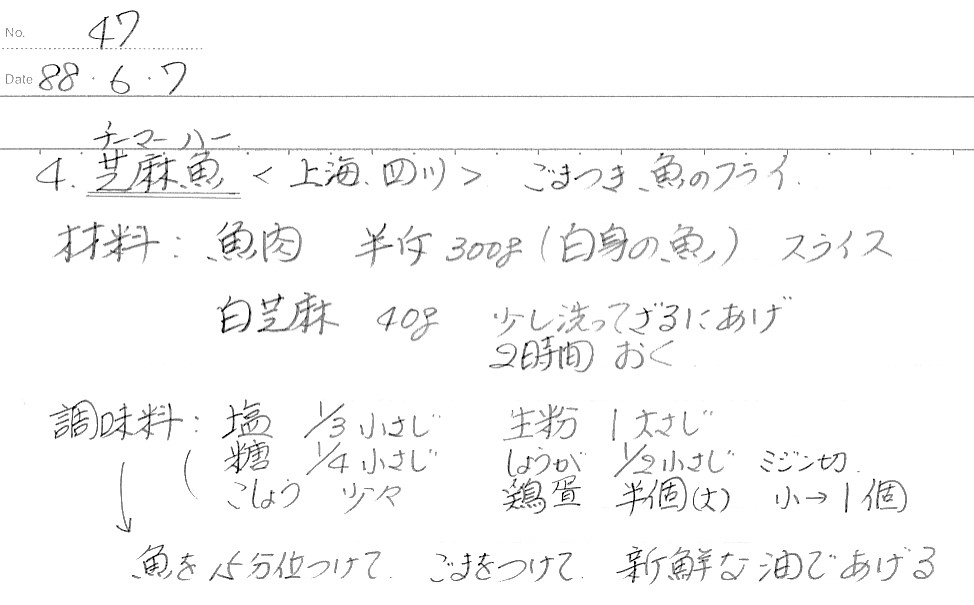 No. 47
Date 88・6・7
チーマーハー
4. 芝麻魚 <上海、四川> ごまつき魚のフライ.
材料: 魚肉 半斤 300g (白身の魚) スライス
白芝麻 40g 少し洗ってざるにあげ
2時間おく
調味料: 塩 1/3小さじ 生粉 1大さじ
糖 1/4小さじ しょうが 1/2小さじ ミジン切.
こしょう 少々 鶏蛋 半個(大) 小→1個
魚を15分位つけて. ごまをつけて. 新鮮な油であげる